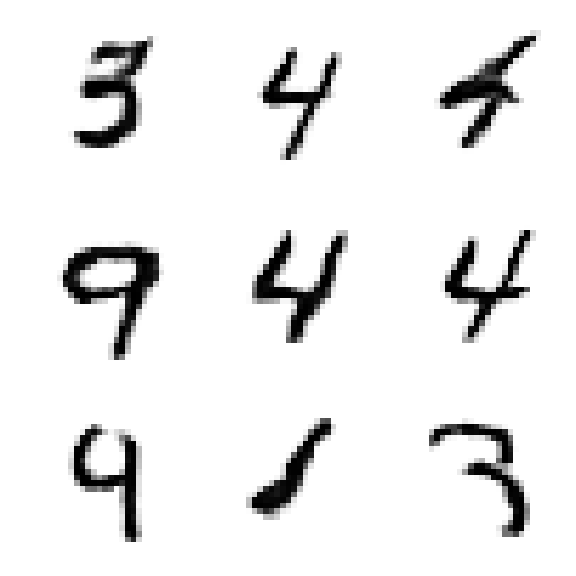 3 4 4
9 4 4
9 3